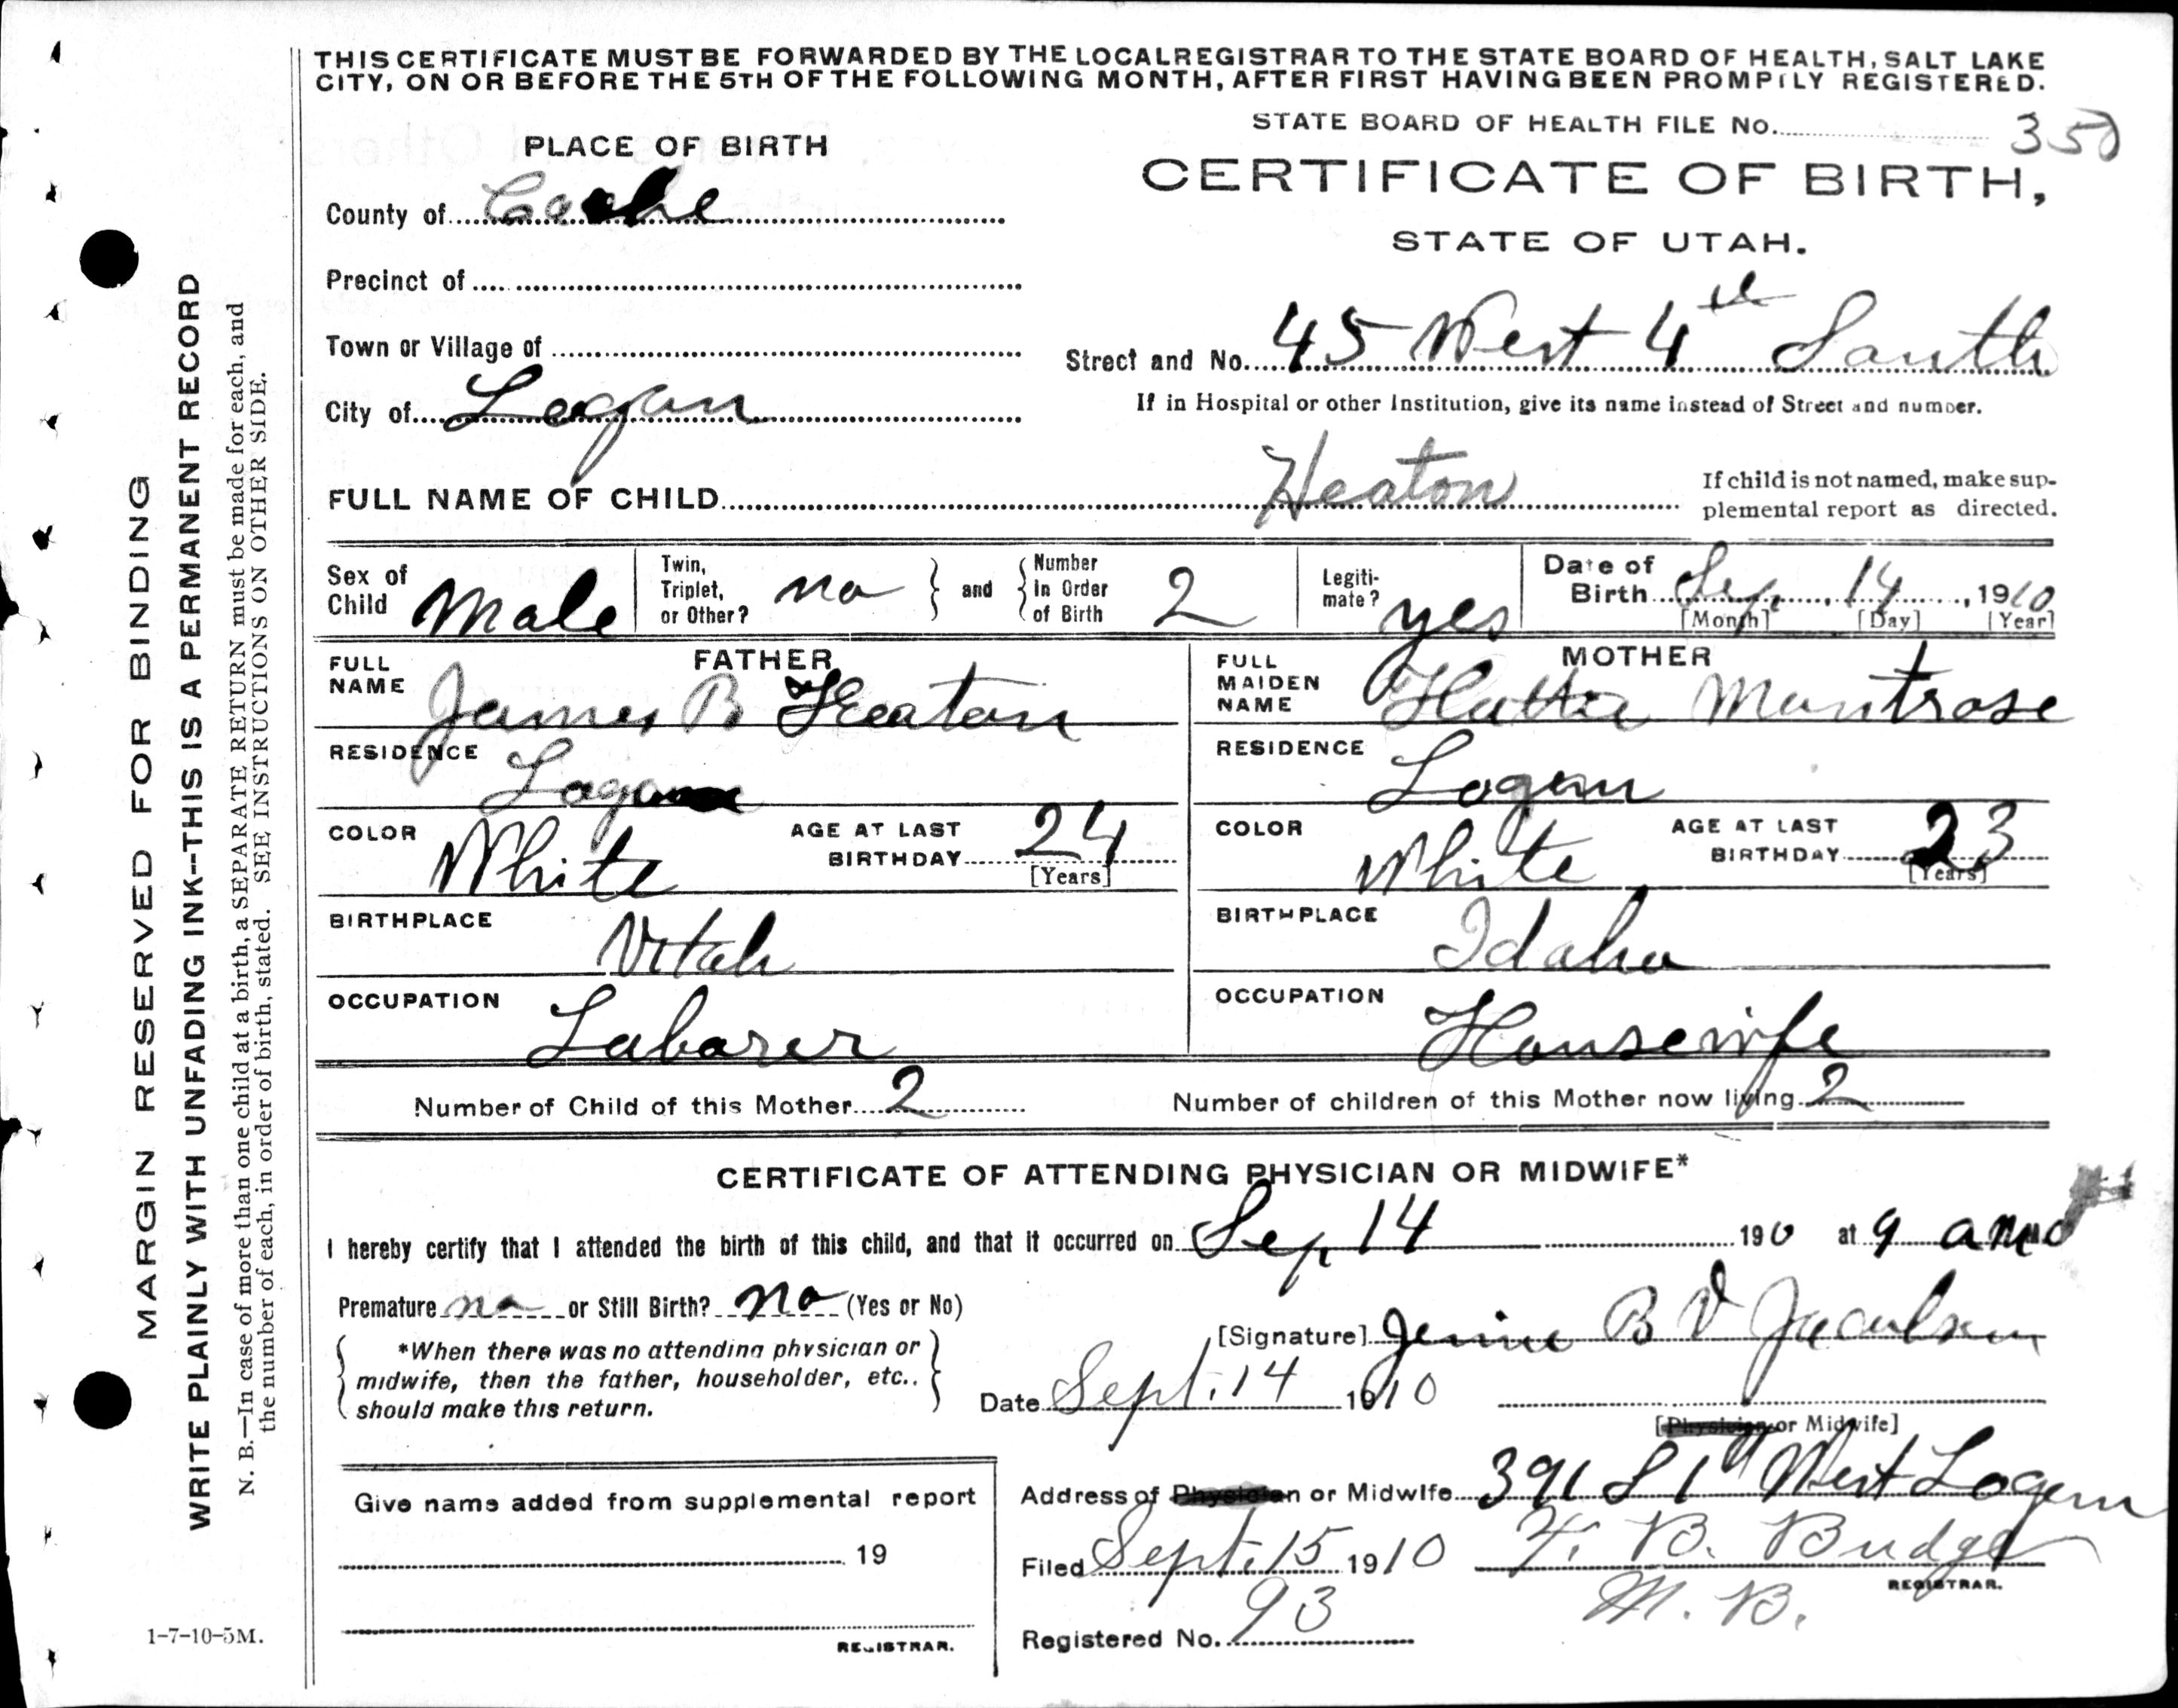 THIS CERTIFICATE MUST BE FORWARDED BY THE LOCAL REGISTRAR TO THE STATE BOARD OF HEALTH, SALT LAKE
CITY, ON OR BEFORE THE 5TH OF THE FOLLOWING MONTH, AFTER FIRST HAVING BEEN PROMPTLY REGISTERED.
STATE BOARD OF HEALTH FILE No. 350
PLACE OF BIRTH
CERTIFICATE OF BIRTH,
STATE OF UTAH.
County of Cache
Precinct of
Town or Village of
Street and No. 45 West 4th South
City of Logan
If in Hospital or other Institution, give its name instead of Street and number.
FULL NAME OF CHILD Heaton
If child is not named, make sup-
plemental report as directed.
Sex of Child Male
Twin, Triplet, or Other? no
and Number in Order of Birth 2
Legiti-mate? yes
Date of Birth Sep. 14, 1910
[Month] [Day] [Year]
FATHER
FULL NAME James B Heaton
RESIDENCE Logan
COLOR White
AGE AT LAST BIRTHDAY 24
[Years]
BIRTHPLACE Utah
OCCUPATION Laborer
MOTHER
FULL MAIDEN NAME Hattie Montrose
RESIDENCE Logan
COLOR White
AGE AT LAST BIRTHDAY 23
[Years]
BIRTHPLACE Idaho
OCCUPATION Housewife
Number of Child of this Mother 2
Number of children of this Mother now living 2
CERTIFICATE OF ATTENDING PHYSICIAN OR MIDWIFE*
I hereby certify that I attended the birth of this child, and that it occurred on Sep 14 190 at 9 am
Premature no or Still Birth? no (Yes or No)
*When there was no attending physician or
midwife, then the father, householder, etc.,
should make this return.
[Signature] B V
Date Sept. 14 1910
[Physician or Midwife]
Address of Physician or Midwife 391 S 1st West Logan
Give name added from supplemental report
19
REGISTRAR.
Filed Sept. 15 1910
B. Budge
REGISTRAR.
Registered No. 93
1-7-10-5M.
MARGIN RESERVED FOR BINDING
WRITE PLAINLY WITH UNFADING INK--THIS IS A PERMANENT RECORD
N. B.—In case of more than one child at a birth, a SEPARATE RETURN must be made for each, and
the number of each, in order of birth, stated. SEE INSTRUCTIONS ON OTHER SIDE.